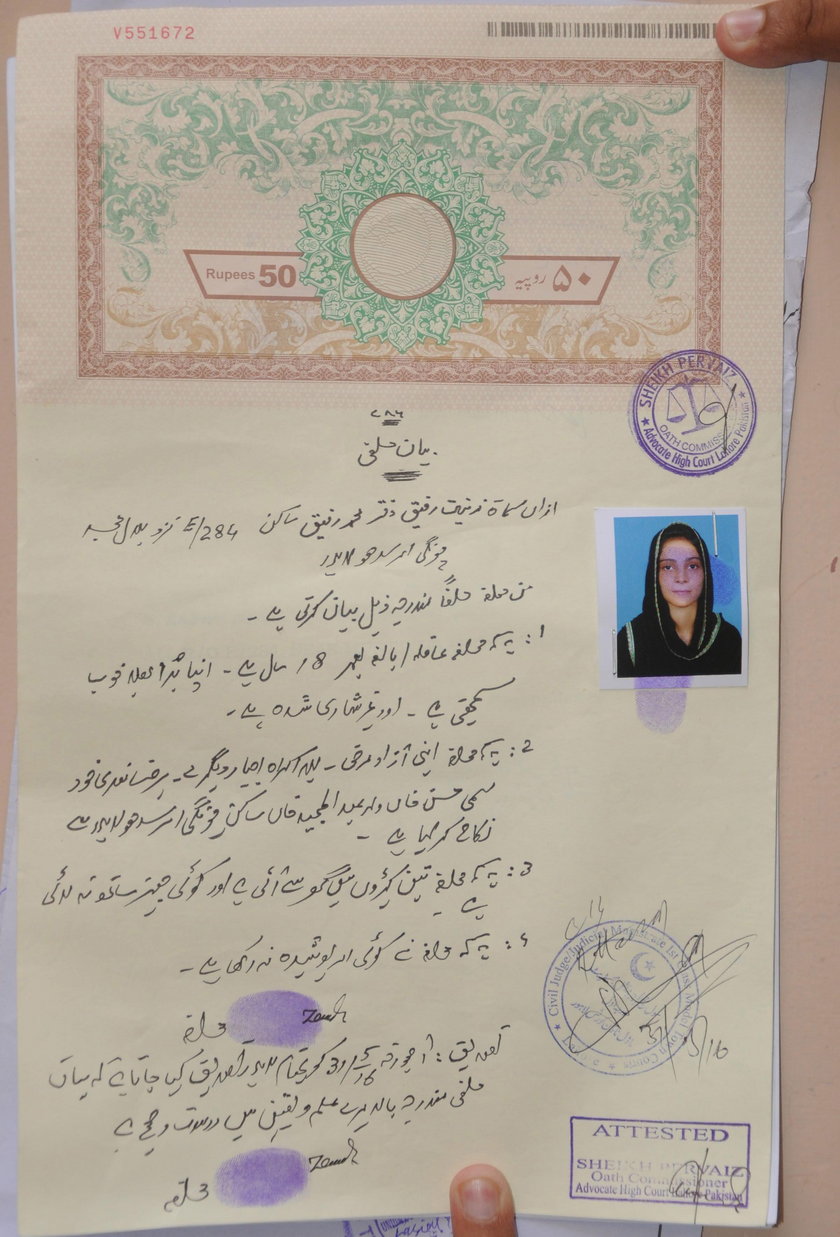 V551672
Rupees 50
۵۰ روپیہ
SHEIKH PERVAIZ
OATH COMMISS
Advocate High Court Lahore Pakistan
۷۸۶
بیان حلفی
ازاں مسماۃ زینت رفیق دختر محمد رفیق ساکن 284/E نزد
چونگی امرسدھو لاہور
من حلفہ حلفاً مندرجہ ذیل بیان کرتی ہے ۔
1: یہ کہ محلفہ عاقلہ / بالغہ بعمر 18 سال ہے ۔ اپنا برا بھلا خوب
سمجھتی ہے ۔ اور غیر شادی شدہ ہے ۔
2: یہ کہ محلفہ اپنی آزاد مرضی ۔ بلا اکراہ اجبار دیگرے ۔ برضامندی خود
مسمی حسن خاں ولد عبدالمجید خاں ساکن چونگی امرسدھو لاہور سے
نکاح کر لیا ہے ۔
3: یہ کہ محلفہ تین کپڑوں میں گھر سے آئی ہے اور کوئی چیز ساتھ نہ لائی
ہے ۔
4: یہ کہ محلفہ نے کوئی امر پوشیدہ نہ رکھا ہے ۔
محلفہ
تصدیق : آج مورخہ 31/5/16 کو بمقام لاہور تصدیق کیا جاتا ہے کہ بیان
حلفی مندرجہ بالا میرے علم و یقین میں درست و صحیح ہے
محلفہ
Civil Judge/Judicial Magistrate Ist Class Model Town Courts
31/5/16
ATTESTED
SHEIKH PERVAIZ
Oath Commissioner
Advocate High Court Lahore Pakistan